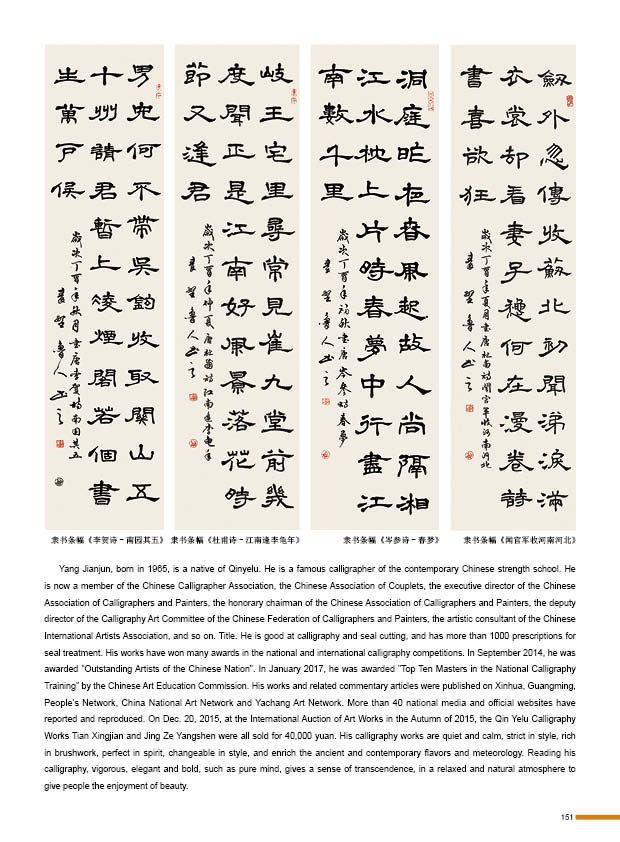 男兒何不帶吳鈎收取關山五
十州請君暫上凌煙閣若個書
生萬戶侯
歲次丁酉年秋月書唐李賀詩南園其五
岐王宅里尋常見崔九堂前幾
度聞正是江南好風景落花時
節又逢君
歲次丁酉年仲夏唐杜甫詩江南逢李龜年
洞庭昨夜春風起故人尚隔湘
江水枕上片時春夢中行盡江
南數千里
歲次丁酉年初秋書唐岑參詩春夢
劍外忽傳收薊北初聞涕淚滿
衣裳却看妻子愁何在漫卷詩
書喜欲狂
歲次丁酉年夏月書唐杜甫詩聞官軍收河南河北
隶书条幅《李贺诗－南园其五》 隶书条幅《杜甫诗－江南逢李龟年》 隶书条幅《岑参诗－春梦》 隶书条幅《闻官军收河南河北》
Yang Jianjun, born in 1965, is a native of Qinyelu. He is a famous calligrapher of the contemporary Chinese strength school. He
is now a member of the Chinese Calligrapher Association, the Chinese Association of Couplets, the executive director of the Chinese
Association of Calligraphers and Painters, the honorary chairman of the Chinese Association of Calligraphers and Painters, the deputy
director of the Calligraphy Art Committee of the Chinese Federation of Calligraphers and Painters, the artistic consultant of the Chinese
International Artists Association, and so on. Title. He is good at calligraphy and seal cutting, and has more than 1000 prescriptions for
seal treatment. His works have won many awards in the national and international calligraphy competitions. In September 2014, he was
awarded "Outstanding Artists of the Chinese Nation". In January 2017, he was awarded "Top Ten Masters in the National Calligraphy
Training" by the Chinese Art Education Commission. His works and related commentary articles were published on Xinhua, Guangming,
People's Network, China National Art Network and Yachang Art Network. More than 40 national media and official websites have
reported and reproduced. On Dec. 20, 2015, at the International Auction of Art Works in the Autumn of 2015, the Qin Yelu Calligraphy
Works Tian Xingjian and Jing Ze Yangshen were all sold for 40,000 yuan. His calligraphy works are quiet and calm, strict in style, rich
in brushwork, perfect in spirit, changeable in style, and enrich the ancient and contemporary flavors and meteorology. Reading his
calligraphy, vigorous, elegant and bold, such as pure mind, gives a sense of transcendence, in a relaxed and natural atmosphere to
give people the enjoyment of beauty.
151